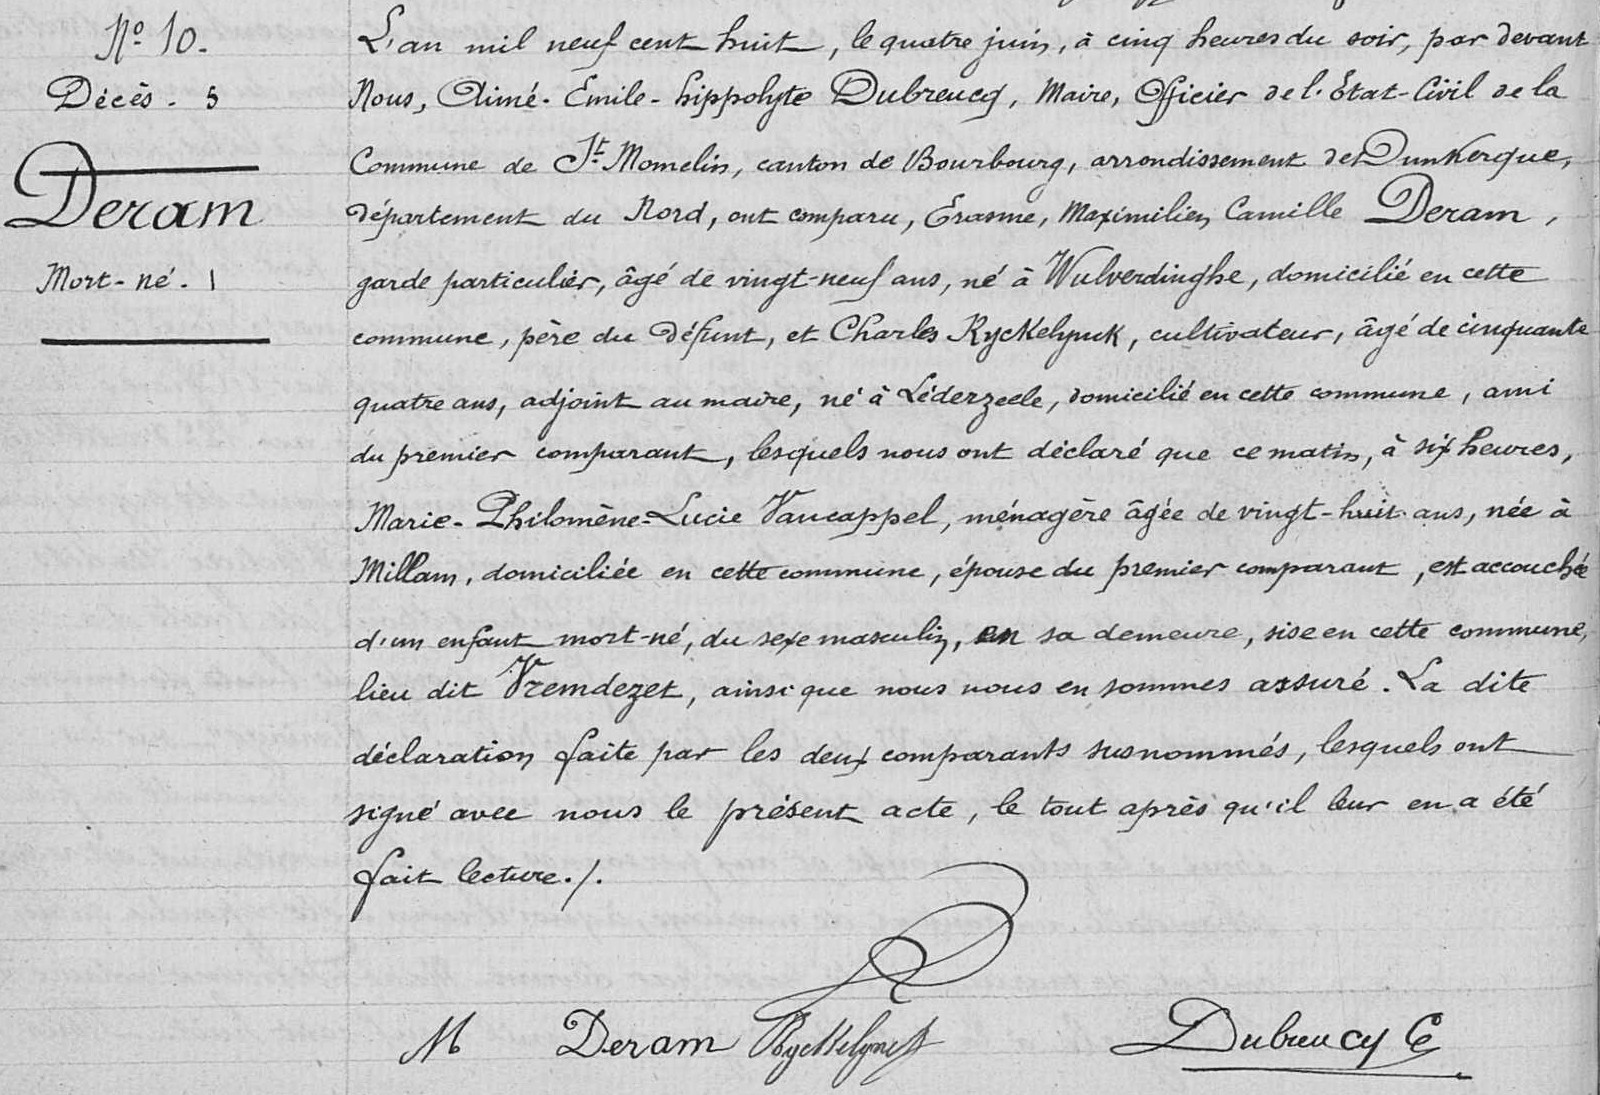 Nº 10.
Décès. 5
Deram
Mort-né. 1
L'an mil neuf cent huit, le quatre juin, à cinq heures du soir, par devant
Nous, Aimé-Emile-hippolyte Dubreucq, Maire, Officier de l'Etat-Civil de la
Commune de St Momelin, canton de Bourbourg, arrondissement de Dunkerque,
département du Nord, ont comparu, Erasme, Maximilien Camille Deram,
garde particulier, âgé de vingt-neuf ans, né à Wulverdinghe, domicilié en cette
commune, père du défunt, et Charles Ryckelynck, cultivateur, âgé de cinquante
quatre ans, adjoint au maire, né à Léderzeele, domicilié en cette commune, ami
du premier comparant, lesquels nous ont déclaré que ce matin, à six heures,
Marie-Philomène-Lucie Vancappel, ménagère âgée de vingt-huit ans, née à
Millam, domiciliée en cette commune, épouse du premier comparant, est accouchée
d'un enfant mort-né, du sexe masculin, en sa demeure, sise en cette commune,
lieu dit Vremdezet, ainsi que nous nous en sommes assuré. La dite
déclaration faite par les deux comparants susnommés, lesquels ont
signé avec nous le présent acte, le tout après qu'il leur en a été
fait lecture./.
M Deram Ryckelynck Dubreucq E